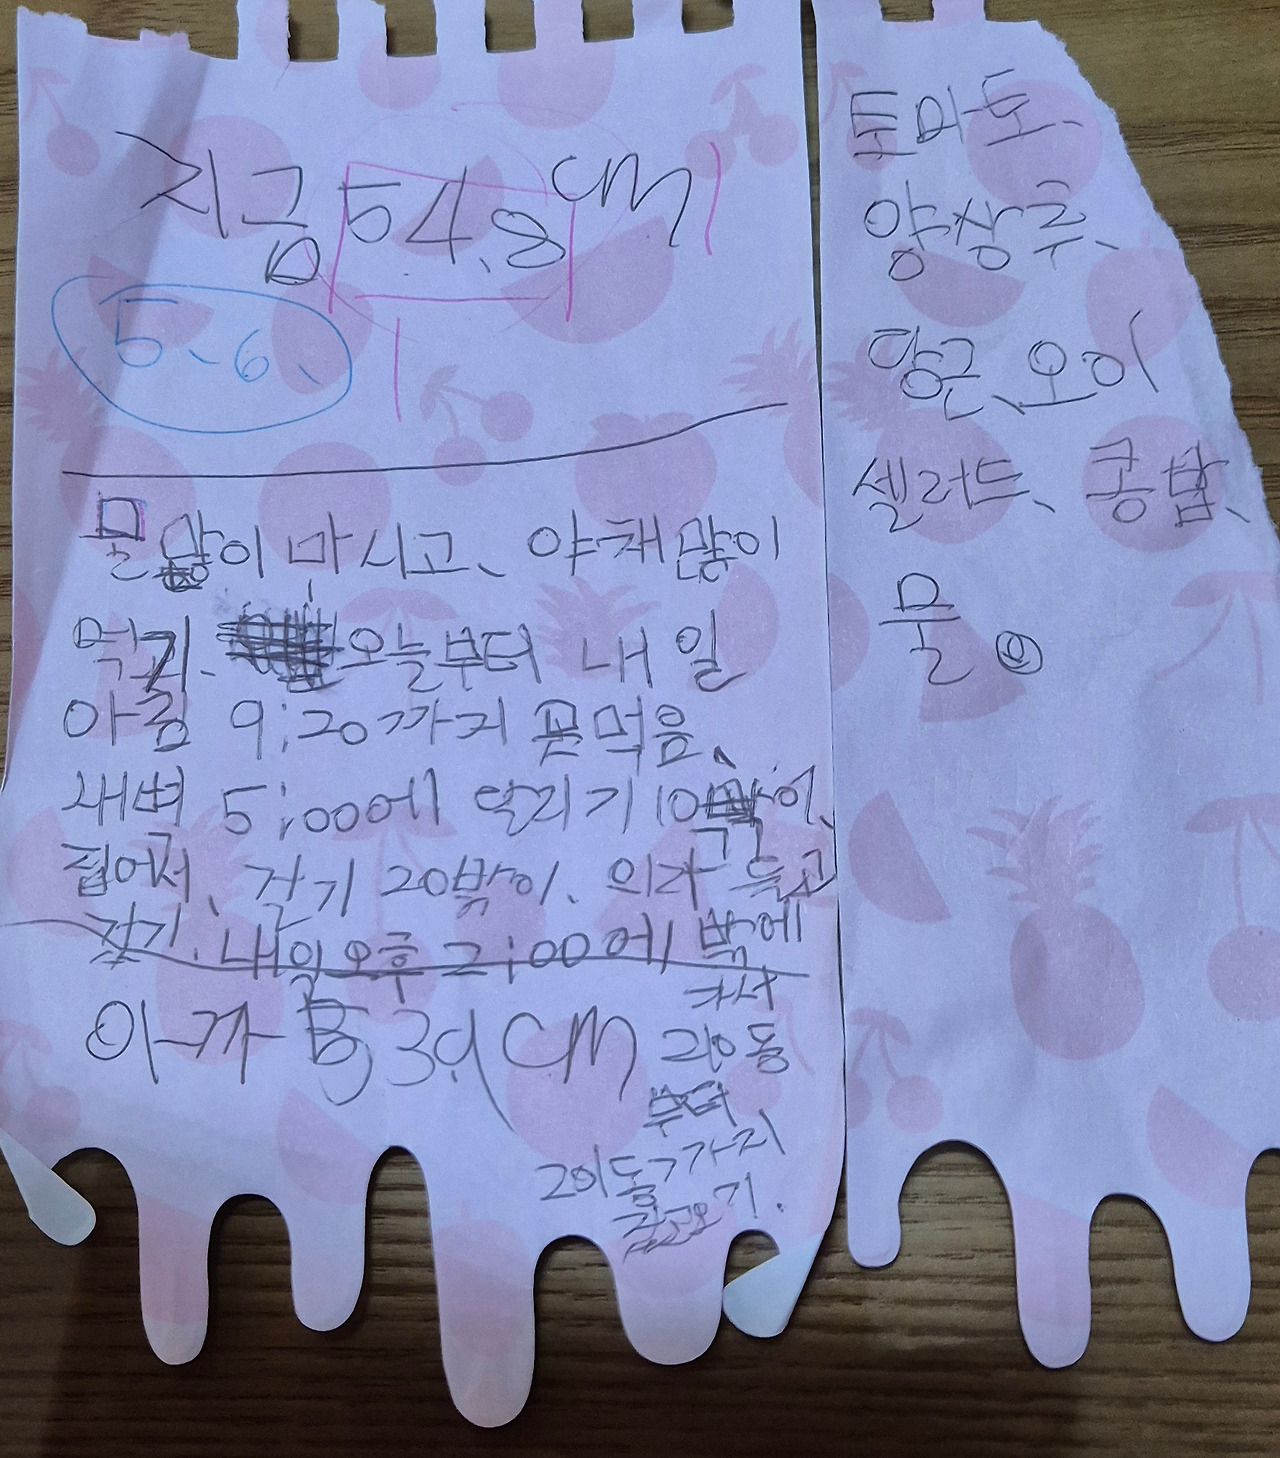 지금 54.8cm
5、6、
물 많이 마시고、 야채많이
먹기. 오늘부터 내일
아침 9:20까지 끝먹음、
새벽 5:00에 달리기 10 이、
집어서、걷기 20밖이. 의자 들고
걷기. 내일 오후 2:00에 밖에
가서
아까 53.9cm 210동
부터
201동까지
기.
토마도、
양상추、
당근、오이
셀러드、콩밥、
물。